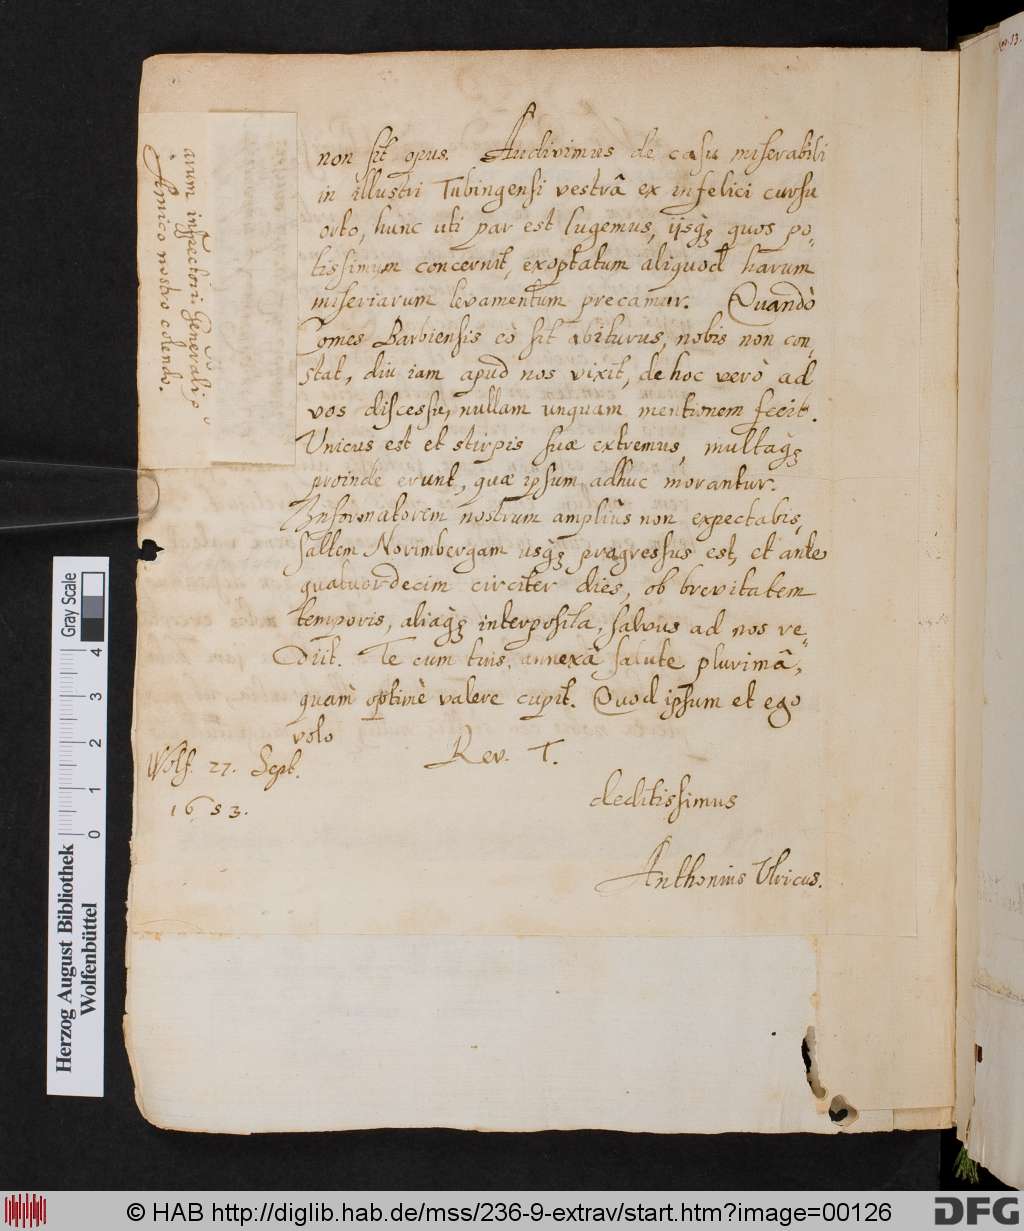 non sit opus. Audivimus de casu miserabili
in illustri Tubingensi vestrâ ex infelici cursu
orto, hunc uti par est lugemus, ijsq₃ quos po-
tissimum concernit, exoptatum aliquod harum
miseriarum levamentum precamur. Quandò
Comes Barbiensis eò sit abiturus, nobis non con-
stat, diu iam apud nos vixit, de hoc verò ad
vos discessu, nullam unquam mentionem fecit.
Unicus est et stirpis suæ extremus, multaq₃
proinde erunt, quæ ipsum adhuc morantur.
Informatorem nostrum ampliùs non expectabis,
saltem Norimbergam usq₃ progressus est, et ante
quatuordecim circiter dies, ob brevitatem
temporis, aliaq₃ interposita, salvus ad nos re-
diit. Te cum tuis, annexâ salute plurimâ,
quàm optimè valere cupit. Quod ipsum et ego
volo
Rev. T.
Wolf. 27. Sept.
1653.
deditissimus
Anthonius Ulricus.
arum inspectori Generali,
Amico nostro colendo.
Herzog August Bibliothek
Wolfenbüttel
Gray Scale
0 1 2 3 4
© HAB http://diglib.hab.de/mss/236-9-extrav/start.htm?image=00126
DFG